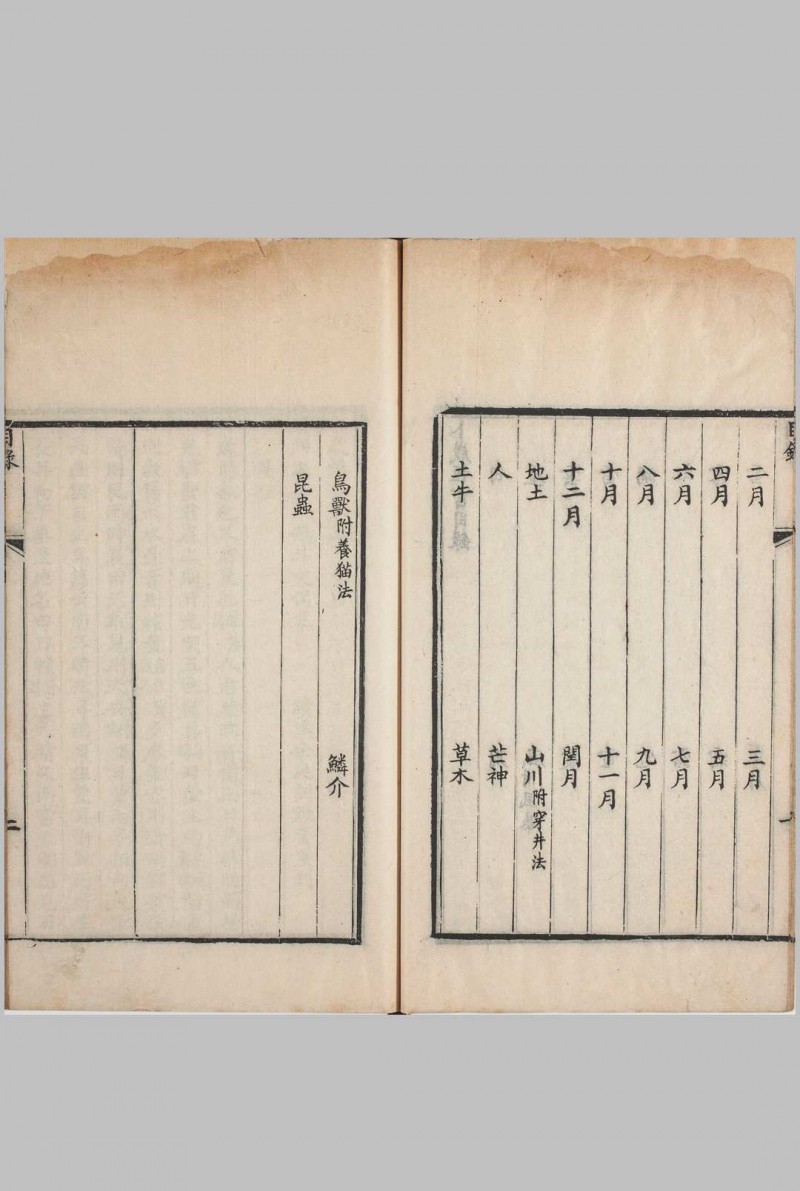 目錄
一
二月 三月
四月 五月
六月 七月
八月 九月
十月 十一月
十二月 閏月
地土 山川附穿井法
人 芒神
土牛 草木
鳥獸附養猫法 鱗介
昆蟲
目錄
二